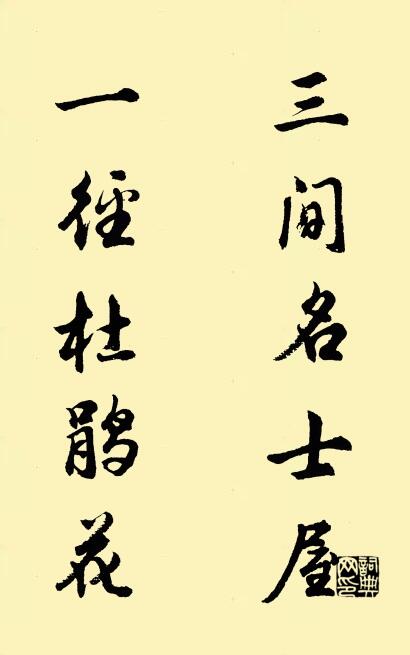 三间名士屋
一径杜鹃花
詞典网印